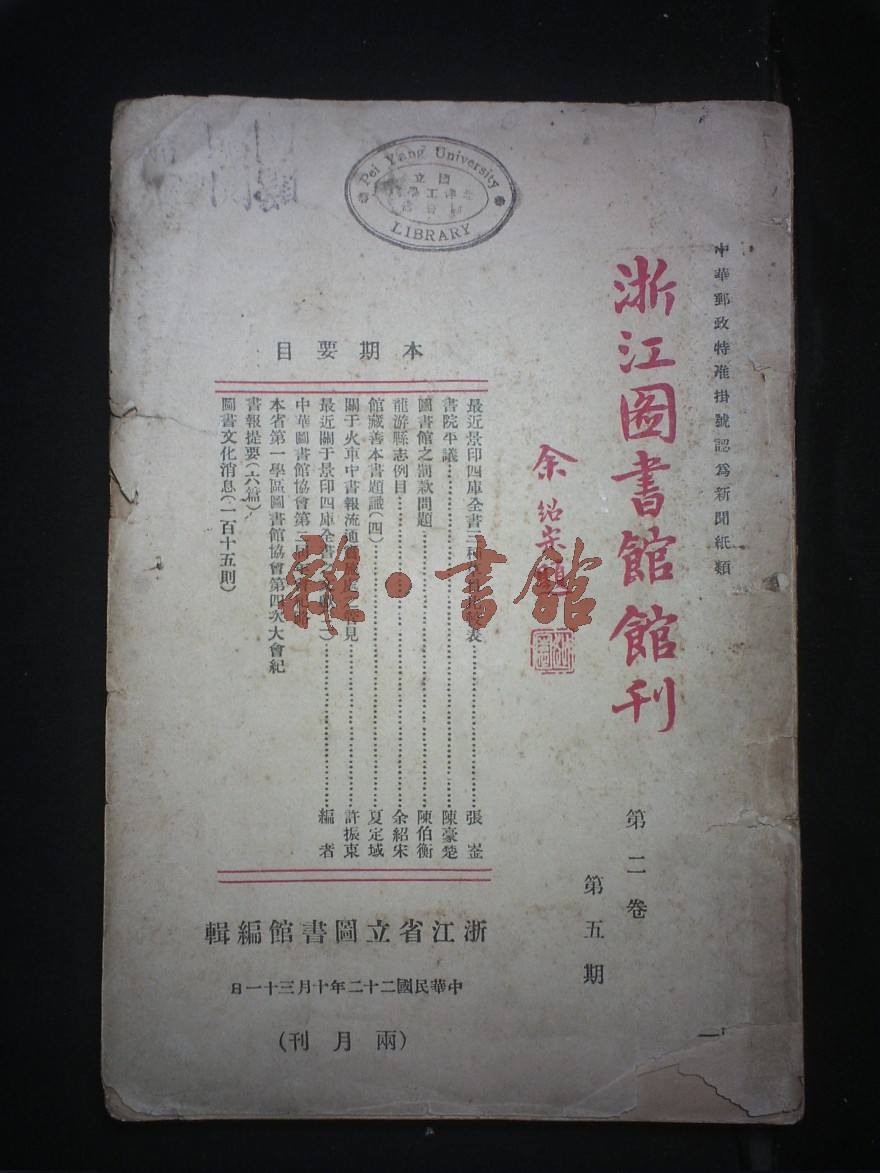 Pei Yang University
國立
LIBRARY
中華郵政特准掛號認爲新聞紙類
浙江圖書館館刊
余紹宋題
第二卷
第五期
本期要目
最近景印四庫全書三種 表……張崟
書院平議……陳豪楚
圖書館之罰款問題……陳伯衡
龍游縣志例目……余紹宋
館藏善本書題識(四)……夏定域
關于火車中書報流通 見……許振東
最近關于景印四庫全書 ……編者
中華圖書館協會第二
本省第一學區圖書館協會第四次大會紀
書報提要(六篇)
圖書文化消息(一百十五則)
浙江省立圖書館編輯
中華民國二十二年十月三十一日
(兩月刊)
雜·書館